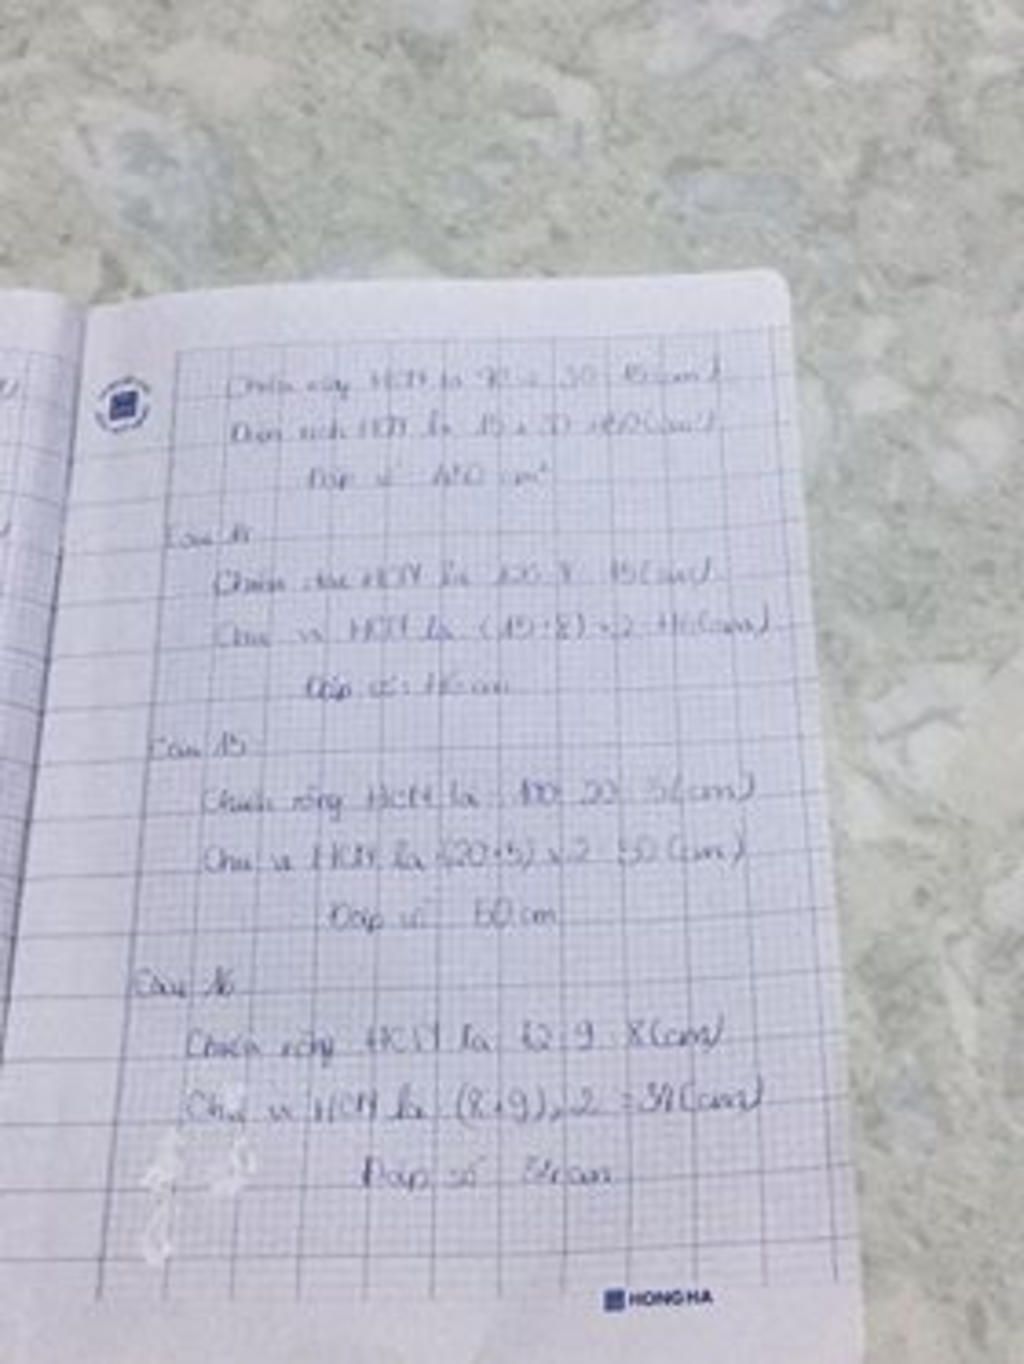 Chiều rộng HCN là
Diện tích HCN là 15 x 30 = 450 (cm²)
Đáp số 450 cm²
Câu 14
Chiều HCN là 120 : 8 = 15 (cm)
Chu vi HCN là (15+8) x 2 = 46 (cm)
Đáp số : 46 cm
Câu 15
Chiều rộng HCN là 100 : 20 = 5 (cm)
Chu vi HCN là (20+5) x 2 = 50 (cm)
Đáp số 50 cm
Câu 16
Chiều rộng HCN là 72 : 9 = 8 (cm)
Chu vi HCN là (8+9) x 2 = 34 (cm)
Đáp số 34 cm
HONG HA